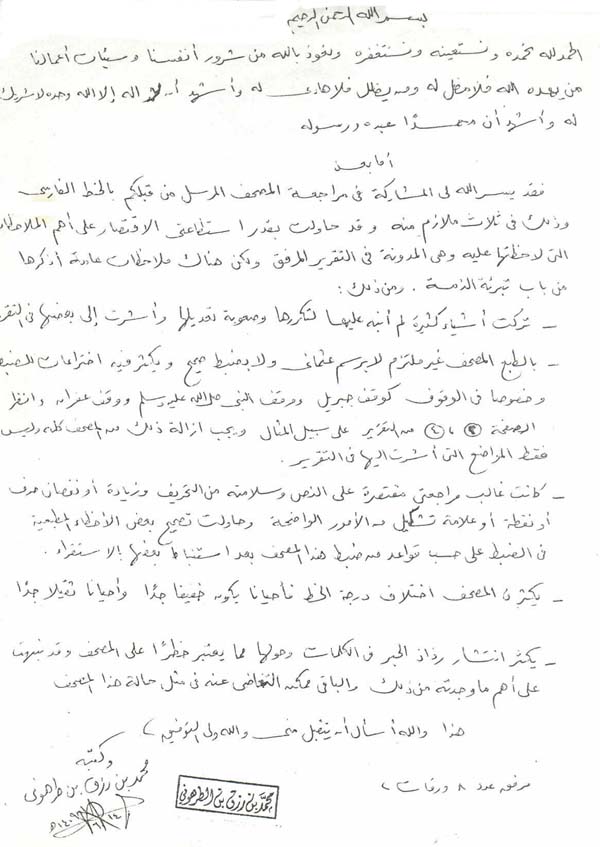 بسم الله الرحمن الرحيم
الحمد لله نحمده ونستعينه ونستغفره ونعوذ بالله من شرور أنفسنا وسيئات أعمالنا
من يهده الله فلا مضل له ومن يضلل فلا هادى له وأشهد أن لا إله إلا الله وحده لا شريك
له وأشهد أن محمدًا عبده ورسوله
أما بعد
فقد يسر الله لى المشاركة فى مراجعة المصحف المرسل من قبلكم بالخط الفارسى
وذلك فى ثلاث ملازم منه وقد حاولت بقدر استطاعتى الاقتصار على أهم الملاحظات
التى لاحظتها عليه وهى المدونة فى التقرير المرفق ولكن هناك ملاحظات عامة أذكرها
من باب تبرئة الذمة . ومن ذلك :
ـ تركت أشياء كثيرة لم أنبه عليها لتكررها وصعوبة تعديلها وأشرت إلى بعضها فى التقرير
ـ بالطبع المصحف غير ملتزم لا برسم عثمانى ولا بضبط صحيح ويكثر فيه اختراعات الضبط
وخصوصا فى الوقوف كوقف جبريل ووقف النبى صلى الله عليه وسلم ووقف غفران وانظر
الصفحة من التقرير على سبيل المثال ويجب ازالة ذلك من المصحف كله وليس
فقط المواضع التى أشرت اليها فى التقرير .
ـ كانت غالب مراجعتى مقتصرة على النص وسلامته من التحريف وزيادة أو نقصان حرف
أو نقطة أو علامة تشكيل من الأمور الواضحة وحاولت تصحيح بعض الأخطاء المطبعية
فى الضبط على حسب قواعد ضبط هذا المصحف بعد استنباط بعضها بالاستقراء .
ـ يكثر فى المصحف اختلاف درجة الخط فأحيانا يكون خفيفا جدًا وأحيانا ثقيلا جدًا
ـ يكثر انتشار رذاذ الحبر فى الكلمات وحولها مما يعتبر خطرًا على المصحف وقد نبهت
على أهم ما وجدته من ذلك والباقى ممكن التغاضى عنه فى مثل حالة هذا المصحف
هذا والله أسأل أن يتقبل منى والله ولى التوفيق ،
وكتبه
محمد بن رزق بن طرهونى
مرفق عدد ٨ ورقات ،
محمد بن رزق بن الطرهونى